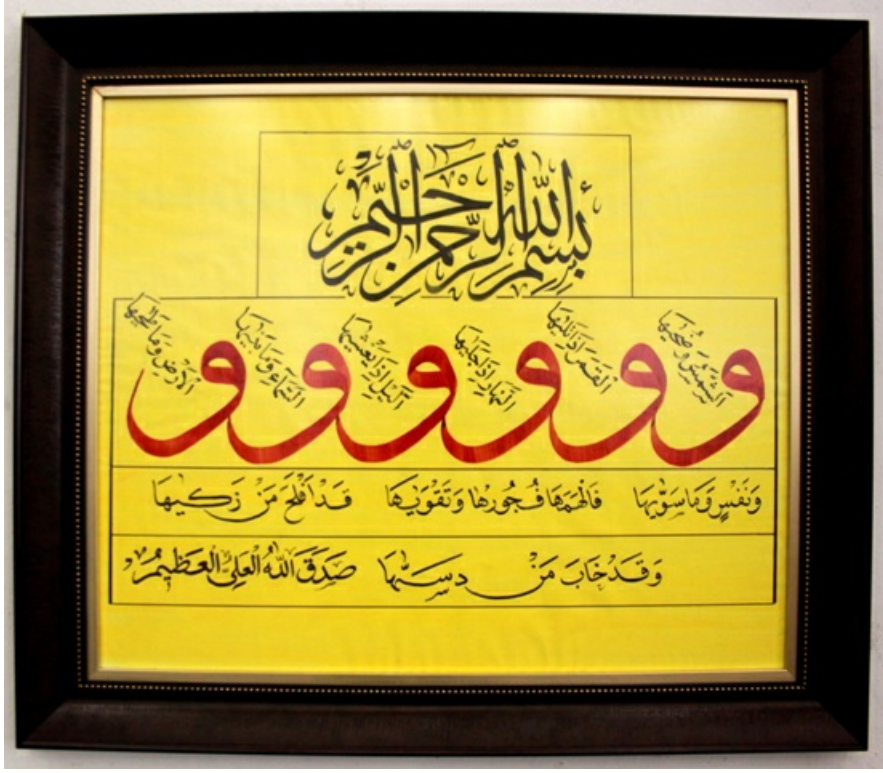 بسم الله الرحمن الرحيم
و الشمس وضحيها و القمر اذا تليها و النهار اذا جليها و اليل اذا يغشيها و السماء وما بنيها و الارض وما طحيها
وَنَفْسٍ وَمَا سَوّٰيهَا فَاَلْهَمَهَا فُجُورَهَا وَتَقْوٰيهَا قَدْ اَفْلَحَ مَنْ زَكّٰيهَا
وَقَدْ خَابَ مَنْ دَسّٰيهَا صَدَقَ اللّٰهُ الْعَلِيُّ الْعَظِيمُ